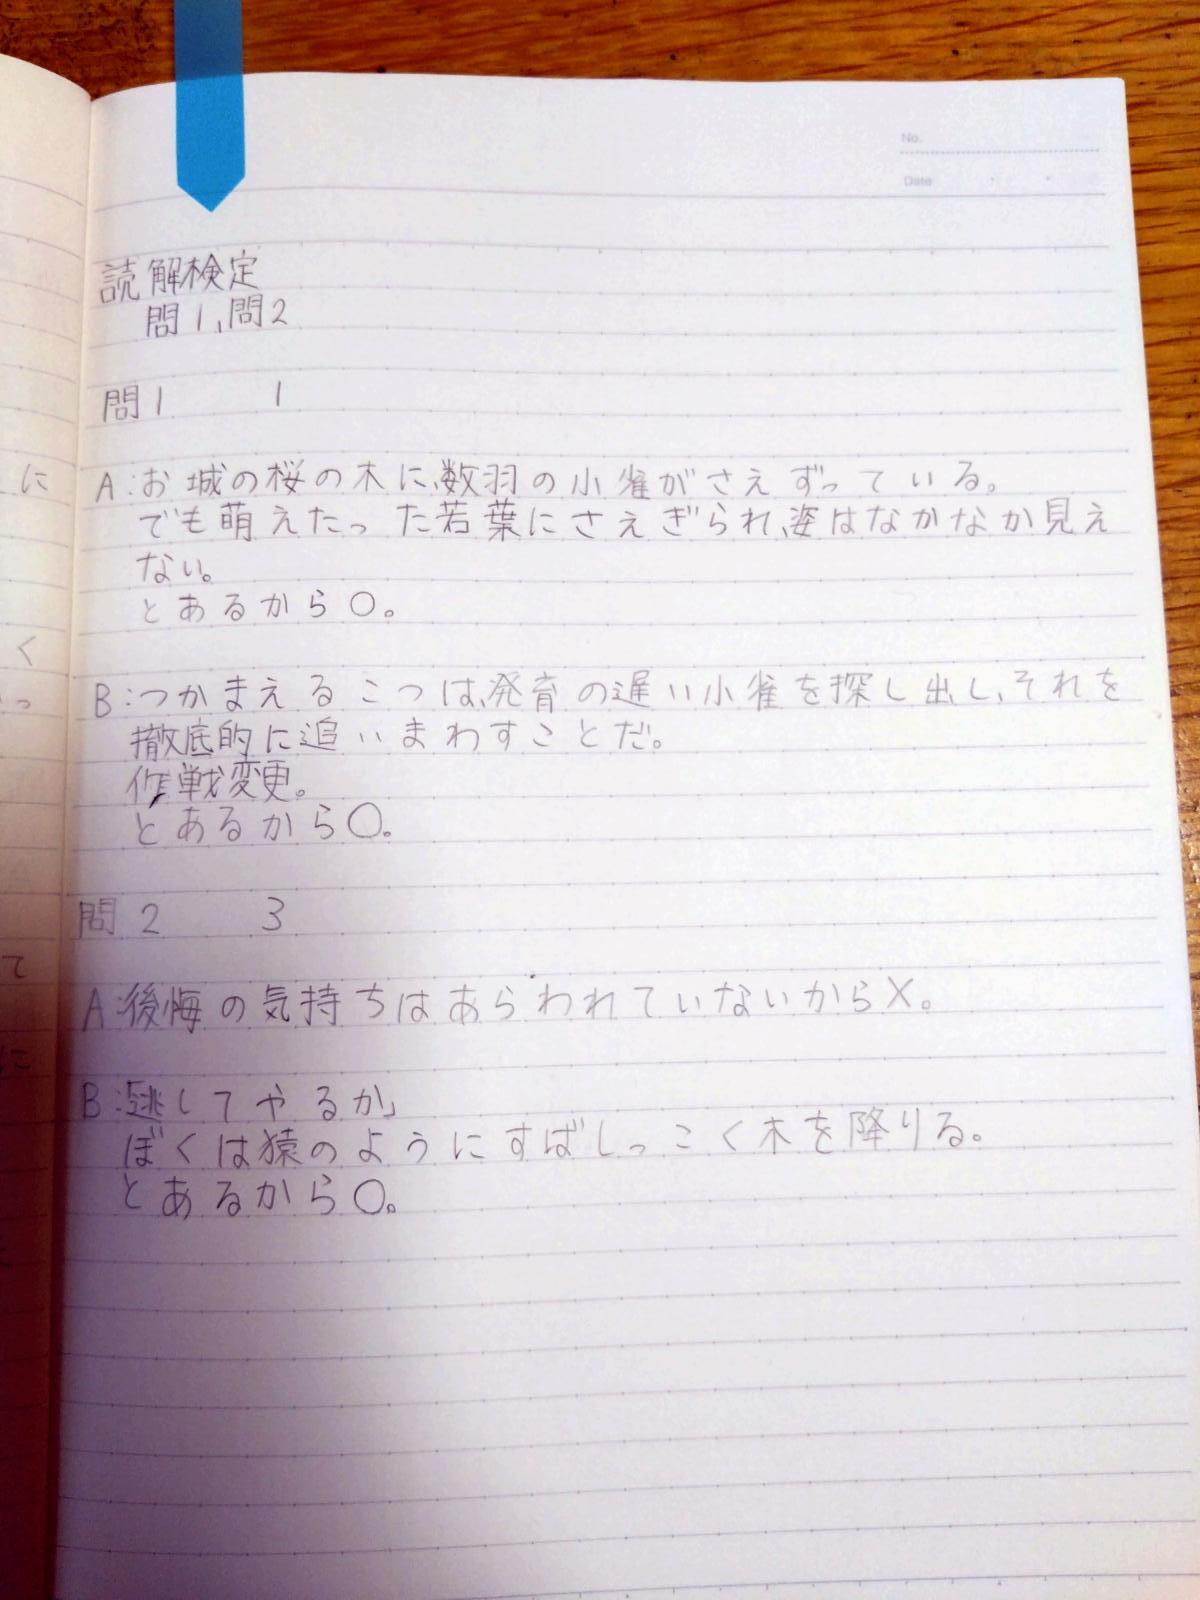 No.
Date
読解検定
問1、問2
問1 1
A:お城の桜の木に、数羽の小雀がさえずっている。
でも萌えたった若葉にさえぎられ、姿はなかなか見え
ない。
とあるから〇。
B:つかまえるこつは、発育の遅い小雀を探し出し、それを
徹底的に追いまわすことだ。
作戦変更。
とあるから〇。
問2 3
A:後悔の気持ちはあらわれていないから×。
B:「逃してやるか」
ぼくは猿のようにすばしっこく木を降りる。
とあるから〇。
に
く
っ
て
に